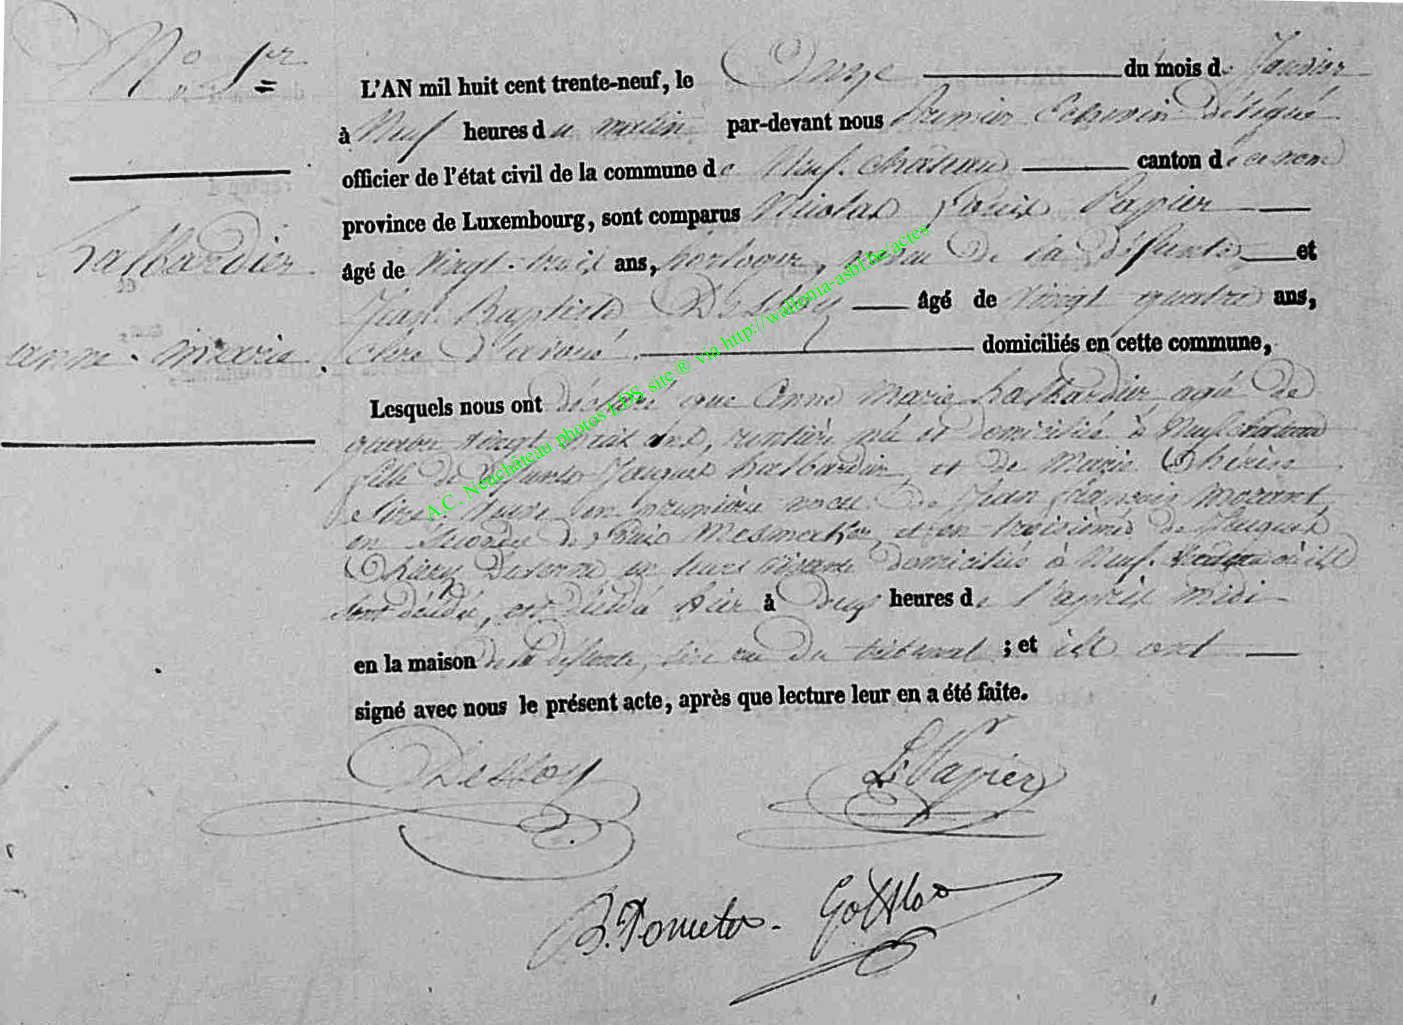 N.o 1er
L'AN mil huit cent trente-neuf, le Onze du mois de Janvier
à Neuf heures du matin par-devant nous Premier Echevin délégué
officier de l'état civil de la commune de Neuf-Château canton de ce nom
province de Luxembourg, sont comparus Nicolas Louis Papier
âgé de vingt-trois ans, horloger, neveu de la défunte et
Jean Baptiste Desloy âgé de vingt quatre ans,
clerc d'avoué domiciliés en cette commune,
halbardier
anne-marie.
Lesquels nous ont déclaré que Anne Marie halbardier agée de
quatre vingt huit ans, rentière née et domiciliée à Neufchateau
fille de défunts Jacques halbardier et de Marie Thérèse
veuve en première noce de Jean François Mozant
en seconde de Louis et en troisième de Jacques
en leurs vivants domiciliés à Neuf-chateau où ils
sont décédés, est décédée hier à deux heures de l'après midi
en la maison de la défunte, sise rue du tribunal ; et ils ont
signé avec nous le présent acte, après que lecture leur en a été faite.
Desloy L. Papier
A.C. Neuchâteau photos LDS site ® via http://wallonia-asbl.be/actes